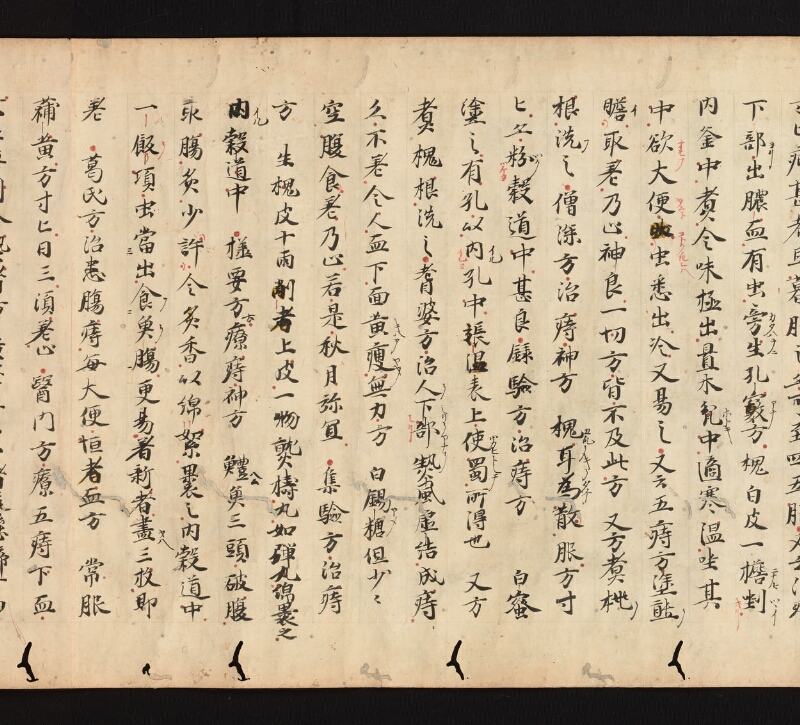 下部出膿血有虫旁生孔竅方槐白皮一檐剉
内釜中煮令味極出置木瓫中適寒温坐其
中欲大便虫悉出冷又易之又云五痔方塗䪥
膽取差乃止神良一切方皆不及此方又方煮桃
根洗之僧深方治痔神方槐耳為散服方寸
匕亦粉穀道中甚良録驗方治痔方白蜜
塗之有孔以内孔中振温表上使蜀所得也又方
煮槐根洗之耆婆方治人下部熱風虚結成痔
久不差令人血下面黄瘦無力方白錫糖但少〻
空腹食差乃止若是秋月弥宜集驗方治痔
方生槐皮十兩削者上皮一物熬檮丸如弾丸綿裹之
内穀道中㨾要方療痔神方鱧魚三頭破腹
取腸炙少許令炙香以綿絮裹之内穀道中
一飯項虫當出食魚腸更易著新者盡三枚即
差葛氏方治患腸痔毎大便恒者血方常服
蒲黄方寸匕日三湏差止醫門方療五痔下血